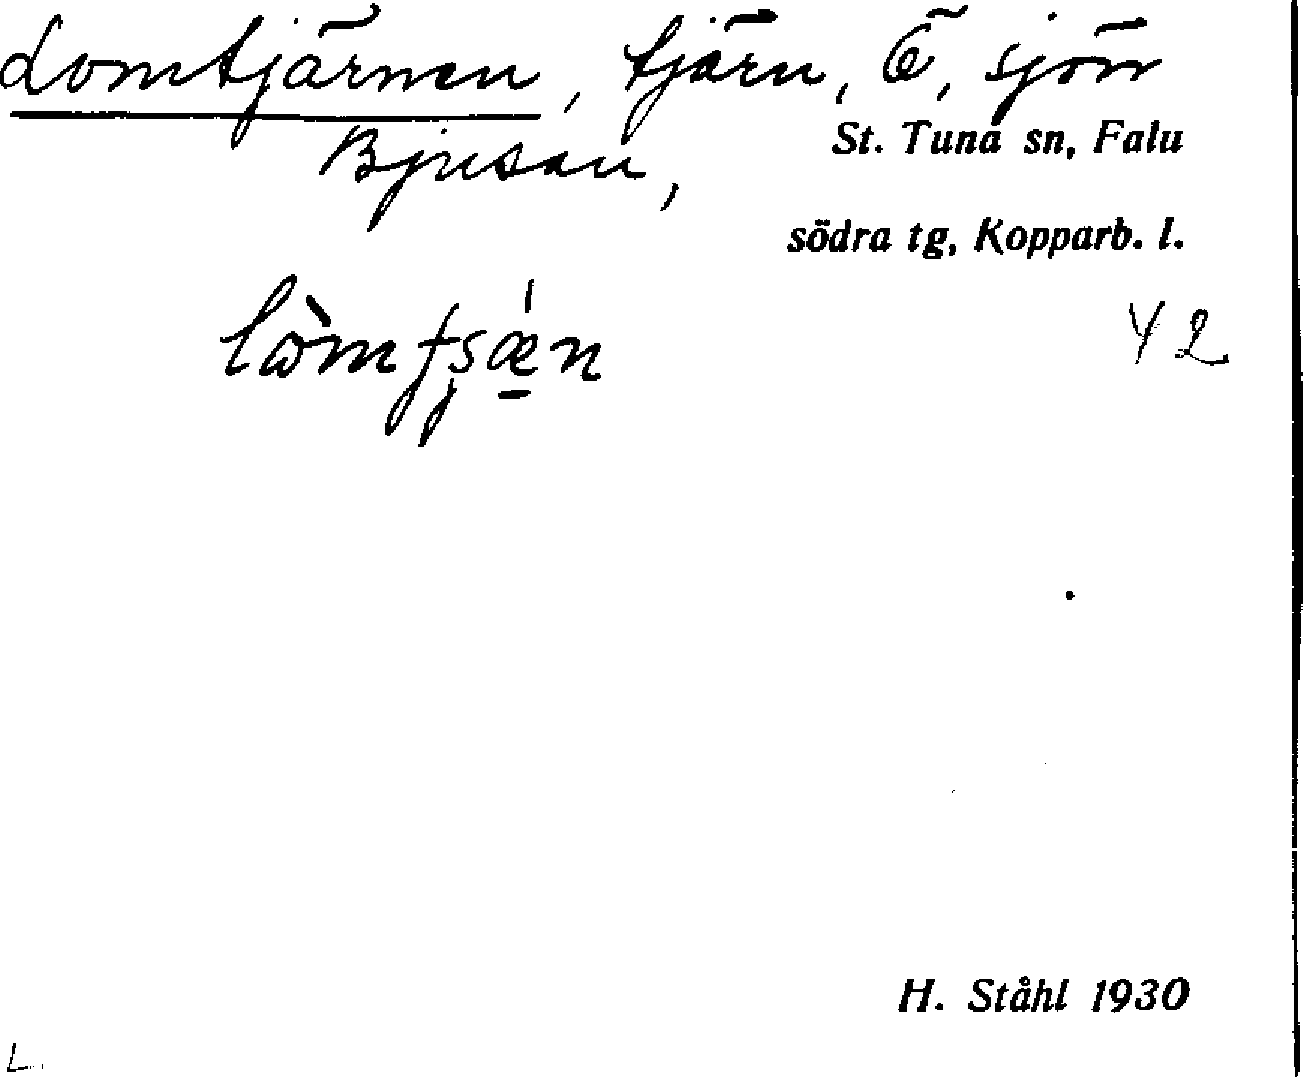 Lomtjärnen, tjärn, Ö, sjön
Bjusen,
St. Tuna sn, Falu
södra tg, Kopparb. l.
42
H. Ståhl 1930
L.